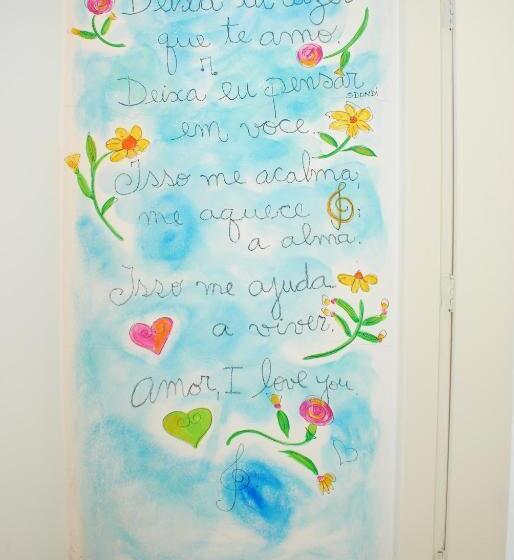 Deixa eu dizer
que te amo.
Deixa eu pensar
SDONDI
em você.
Isso me acalma,
me aquece
a alma.
Isso me ajuda
a viver.
Amor, I love you.